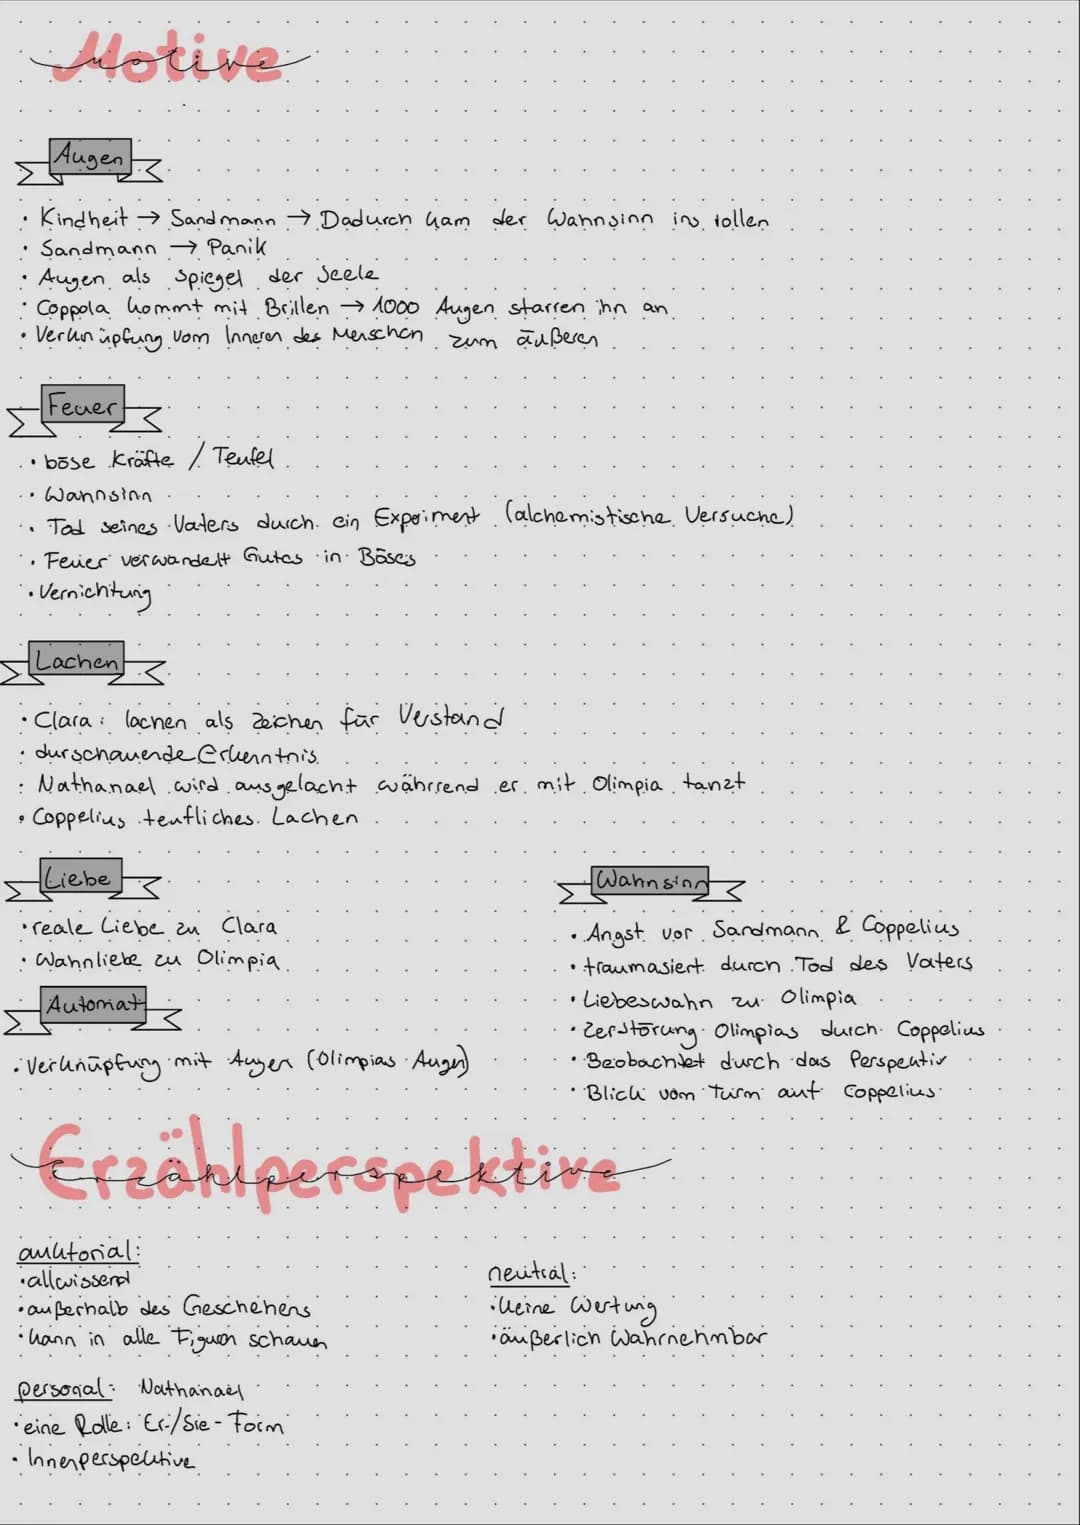 Motive
Augen
• Kindheit → Sandmann → Dadurch kam der Wahnsinn ins rollen
• Sandmann → Panik
• Augen als Spiegel der Seele
• Coppola kommt mit Brillen → 1000 Augen starren ihn an
• Verknüpfung vom Inneren des Menschen zum äußeren
Feuer
• böse Kräfte / Teufel
• Wahnsinn
• Tod seines Vaters durch ein Expeiment (alchemistische Versuche)
• Feuer verwandelt Gutes in Böses
• Vernichtung
Lachen
• Clara: lachen als Zeichen für Verstand
• durschauende Erkenntnis
• Nathanael wird ausgelacht währrend er mit Olimpia tanzt
• Coppelius teufliches Lachen
Liebe
• reale Liebe zu Clara
• Wahnliebe zu Olimpia
Automat
• Verknüpfung mit Augen (Olimpias Augen)
Wahnsinn
• Angst vor Sandmann & Coppelius
• traumasiert durch Tod des Vaters
• Liebeswahn zu Olimpia
• Zerstörung Olimpias durch Coppelius
• Beobachtet durch das Perspektiv
• Blick vom Turm auf Coppelius
Erzählperspektive
auktorial:
• allwissend
• außerhalb des Geschehens
• kann in alle Figuren schauen
neutral:
• keine Wertung
• äußerlich Wahrnehmbar
personal: Nathanael
• eine Rolle: Er-/Sie-Form
• Innenperspektive